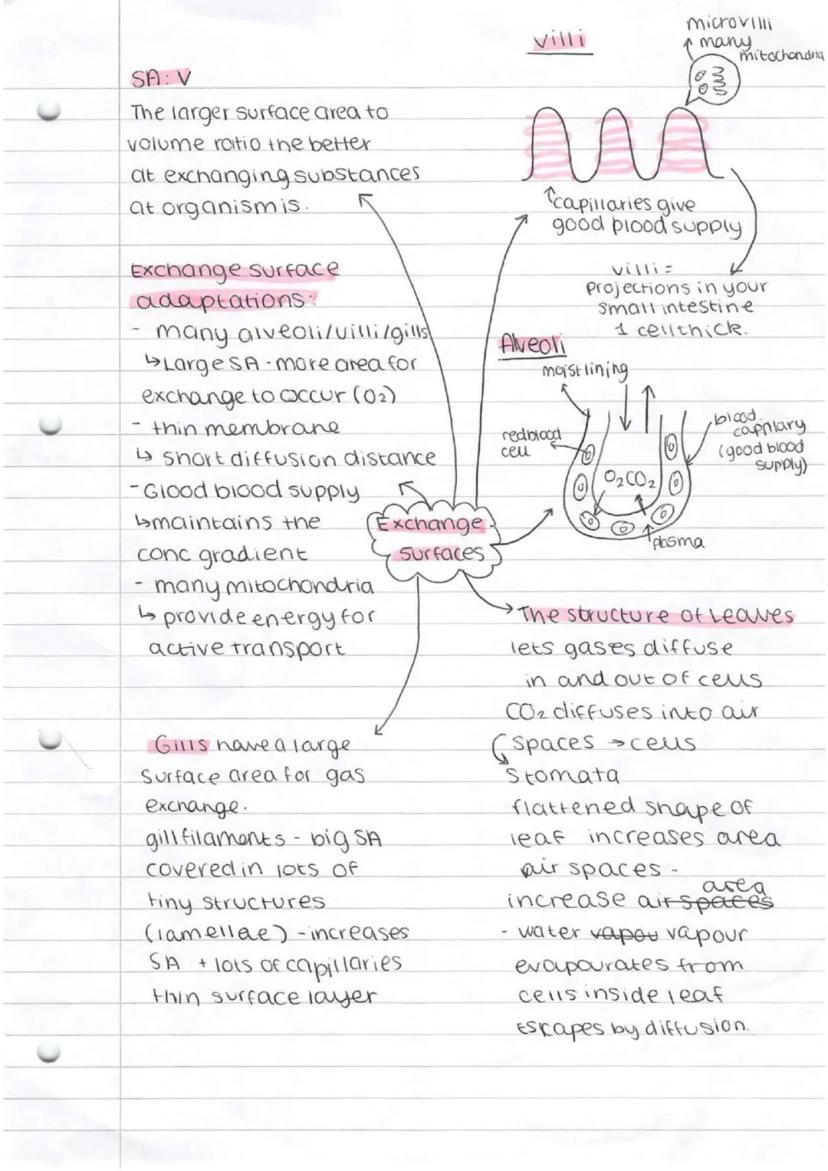 SA:V
The larger surface area to
volume ratio the better
at exchanging substances
at organism is.
Exchange surface
adaptations:
- many alveoli/villi/gills
↳ Large SA - more area for
exchange to occur (O₂)
- thin membrane
↳ short diffusion distance
- Good blood supply
↳ maintains the
conc gradient
- many mitochondria
↳ provide energy for
active transport
Exchange
surfaces
villi
microvilli
many
mitochondria
capillaries give
good blood supply
villi =
projections in your
small intestine
1 cell thick.
Alveoli
moist lining
red blood
cell
blood
capillary
(good blood
supply)
O₂ CO₂
plasma
Gills have a large
surface area for gas
exchange.
gill filaments - big SA
covered in lots of
tiny structures
(lamellae) - increases
SA + lots of capillaries
thin surface layer
The structure of Leaves
lets gases diffuse
in and out of cells
CO₂ diffuses into air
spaces → cells
stomata
flattened shape of
leaf increases area
air spaces -
area
increase air spaces
- water vapou vapour
evapourates from
cells inside leaf
Escapes by diffusion.